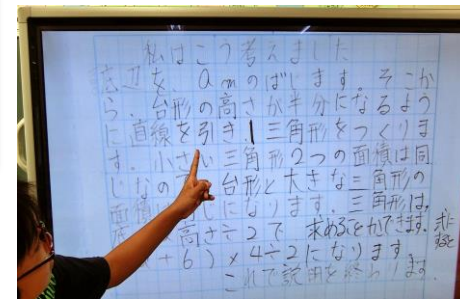 私はこう考えました
底辺を、a mのばします。そこか
ら、台形の高さが半分になるよう
に直線を引き1三角形をつくりま
す。小さい三角形2つの面積は同
じなの 台形と大きな三角形の
面積は じになります。三角形は。
高さ÷2で 求めることができます。式に
すると
+6)×4÷2になります。
これで説明を終わります。